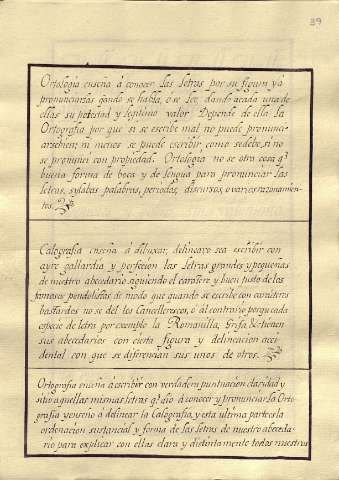 39
Ortología enseña á conocer las letras por su figura, y á
pronunciarlas qándo se habla, ó se lee, dando acada una de
ellas su potestad y legitimo valor. Depende de ella la
Ortografia por que si se escribe mal no puede pronunci-
arse bien; ni menos se puede escribir, como sedebe, si no
se pronuncia con propiedad. Ortología no es otra cosa qᵉ
buena forma de boca y de lengua para pronunciar las
letras, sylabas palabras, periodos, discursos, o varios razonamien-
tos.
Calografia enseña á dibuxar, delinear o sea escribir con
ayre gallardía y perfeccion las letras grandes y pequeñas
de nuestro abecedario siguiendo el carácter y buen gusto de los
famosos pendolistas de modo que quando se escribe con carácteres
bastardos no se dél los Cancellerescos, o al contrario porque cada
especie de letra por exemplo la Romanilla, Grifa &. tienen
sus abecedarios con cierta figura y delineacion acci-
dental con que se diferencian sus unos de otros.
Ortografia enseña á escribir con verdadera puntuacion claridad y
sitio aquellas mismas letras qᵉ dio á conocer y pronunciar la Orto-
grafia y enseño á delinear la Calografia, y esta ultima parte es la
ordenacion sustancial y forma de las letras de nuestro abeceda-
rio para explicar con ellas clara y distintamente todos nuestros